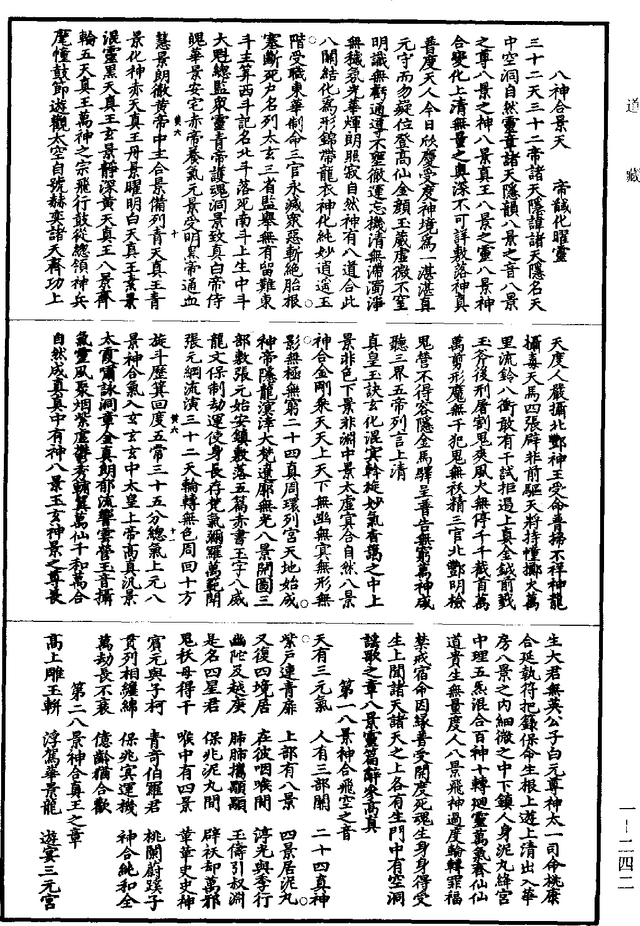 道藏
八神合景天　帝馘化曜靈
三十二天三十二帝諸天隱諱諸天隱名天
中空洞自然靈章諸天隱韻八景之音八景
之尊八景之神八景真王八景之靈八景神
合變化上清無量之奧深不可詳敷落神真
普度天人今日欣慶受度神境為一湛湛真
元守而勿疑位登高仙金顏玉葳虛微不窒
明識無虧通導不壅微運忘機清無滯濁淨
無穢氛光華煇朗照寂自然神有八道合此
八關結化為形錦帶龍衣神化純妙逍遙玉
階受職東華制命三官永滅眾惡斬絕胎根
塞斷死戶名列太玄三省監舉無有留難東
斗主筭西斗記名北斗落死南斗上生中斗
大魁總監眾靈青帝護魂洞景致真白帝侍
魄華景安宅赤帝養氣元景受明黑帝通血
慧景朗徹黃帝中主合景備列青天真王青
景化神赤天真王丹景曜明白天真王素景
混靈黑天真王玄景靜深黃天真王八景齊
輪五天真王萬神之宗飛行鼓從總領神兵
麾幢鼓節遊觀太空自號赫奕諸天齊功上
天度人嚴攝北酆神王受命普掃不祥神龍
攝毒天馬四張辟非前驅天將持幢擲火萬
里流鈴八衝敢有干試拒遏上真金鉞前戮
玉斧後刑屠割鬼爽風火無停千千截首萬
萬剪形魔無干犯鬼無袄精三官北酆明檢
鬼營不得容隱金馬驛呈普告無窮萬神咸
聽三界五帝列言上清
真皇玉訣玄化混冥幹旋妙氣杳藹之中上
景非色下景非淵中景太虛真合自然八景
神合金剛乘天天上天下無幽無冥無形無
影無極無窮二十四真周環列宮天地始成
神帝隱龍溟涬大梵遼廓無光八景開圖三
部敷張元始安鎮敷落五篇赤書玉字八威
龍文保制劫運使身長存梵氣彌羅萬範開
張元綱流演三十二天輪轉無色周回十方
旋斗歷箕回度五常三十五分總氣上元八
景神合氣入玄玄玄中太皇上帝高真汎景
太霞嘯詠洞章金真朗郁流響雲營玉音攝
氣靈風聚烟紫虛鬱秀輔翼萬仙千和萬合
自然成真真中有神八景玉玄神景之尊長
生大君無英公子白元尊神太一司命桃康
合延執符把籙保命生根上遊上清出入華
房八景之內細微之中下鎮人身泥丸絳宮
中理五炁混合百神十轉廻靈萬氣齊仙仙
道貴生無量度人八景飛神過度輪轉罪福
禁戒宿命因緣普受開度死魂生身身得受
生上聞諸天諸天之上各有生門中有空洞
謠歌之章八景靈篇辭參高真
第一八景神合飛空之音
天有三元氣　人有三部關　二十四真神
紫戶連青扉　上部有八景　四景居泥丸
又復四境居　在彼咽喉間　淳光與季行
幽陀及越庚　肺肺攜顒顒　玉儔引叔淵
是名四星君　保兆泥丸間　辟袄卻萬邪
鬼袄毋得干　喉中有四景　華華史史神
賓元與子柯　青奇伯羅君　桃闕蔚蹊子
貫列相纏綿　保兆冥運機　神合純和全
萬劫長不衰　億齡猶合歡
第二八景神合真王之章
高上雕玉輧　浮駕華景龍　遊宴三元宮
黃六　十
黃六　十一
一－二四二